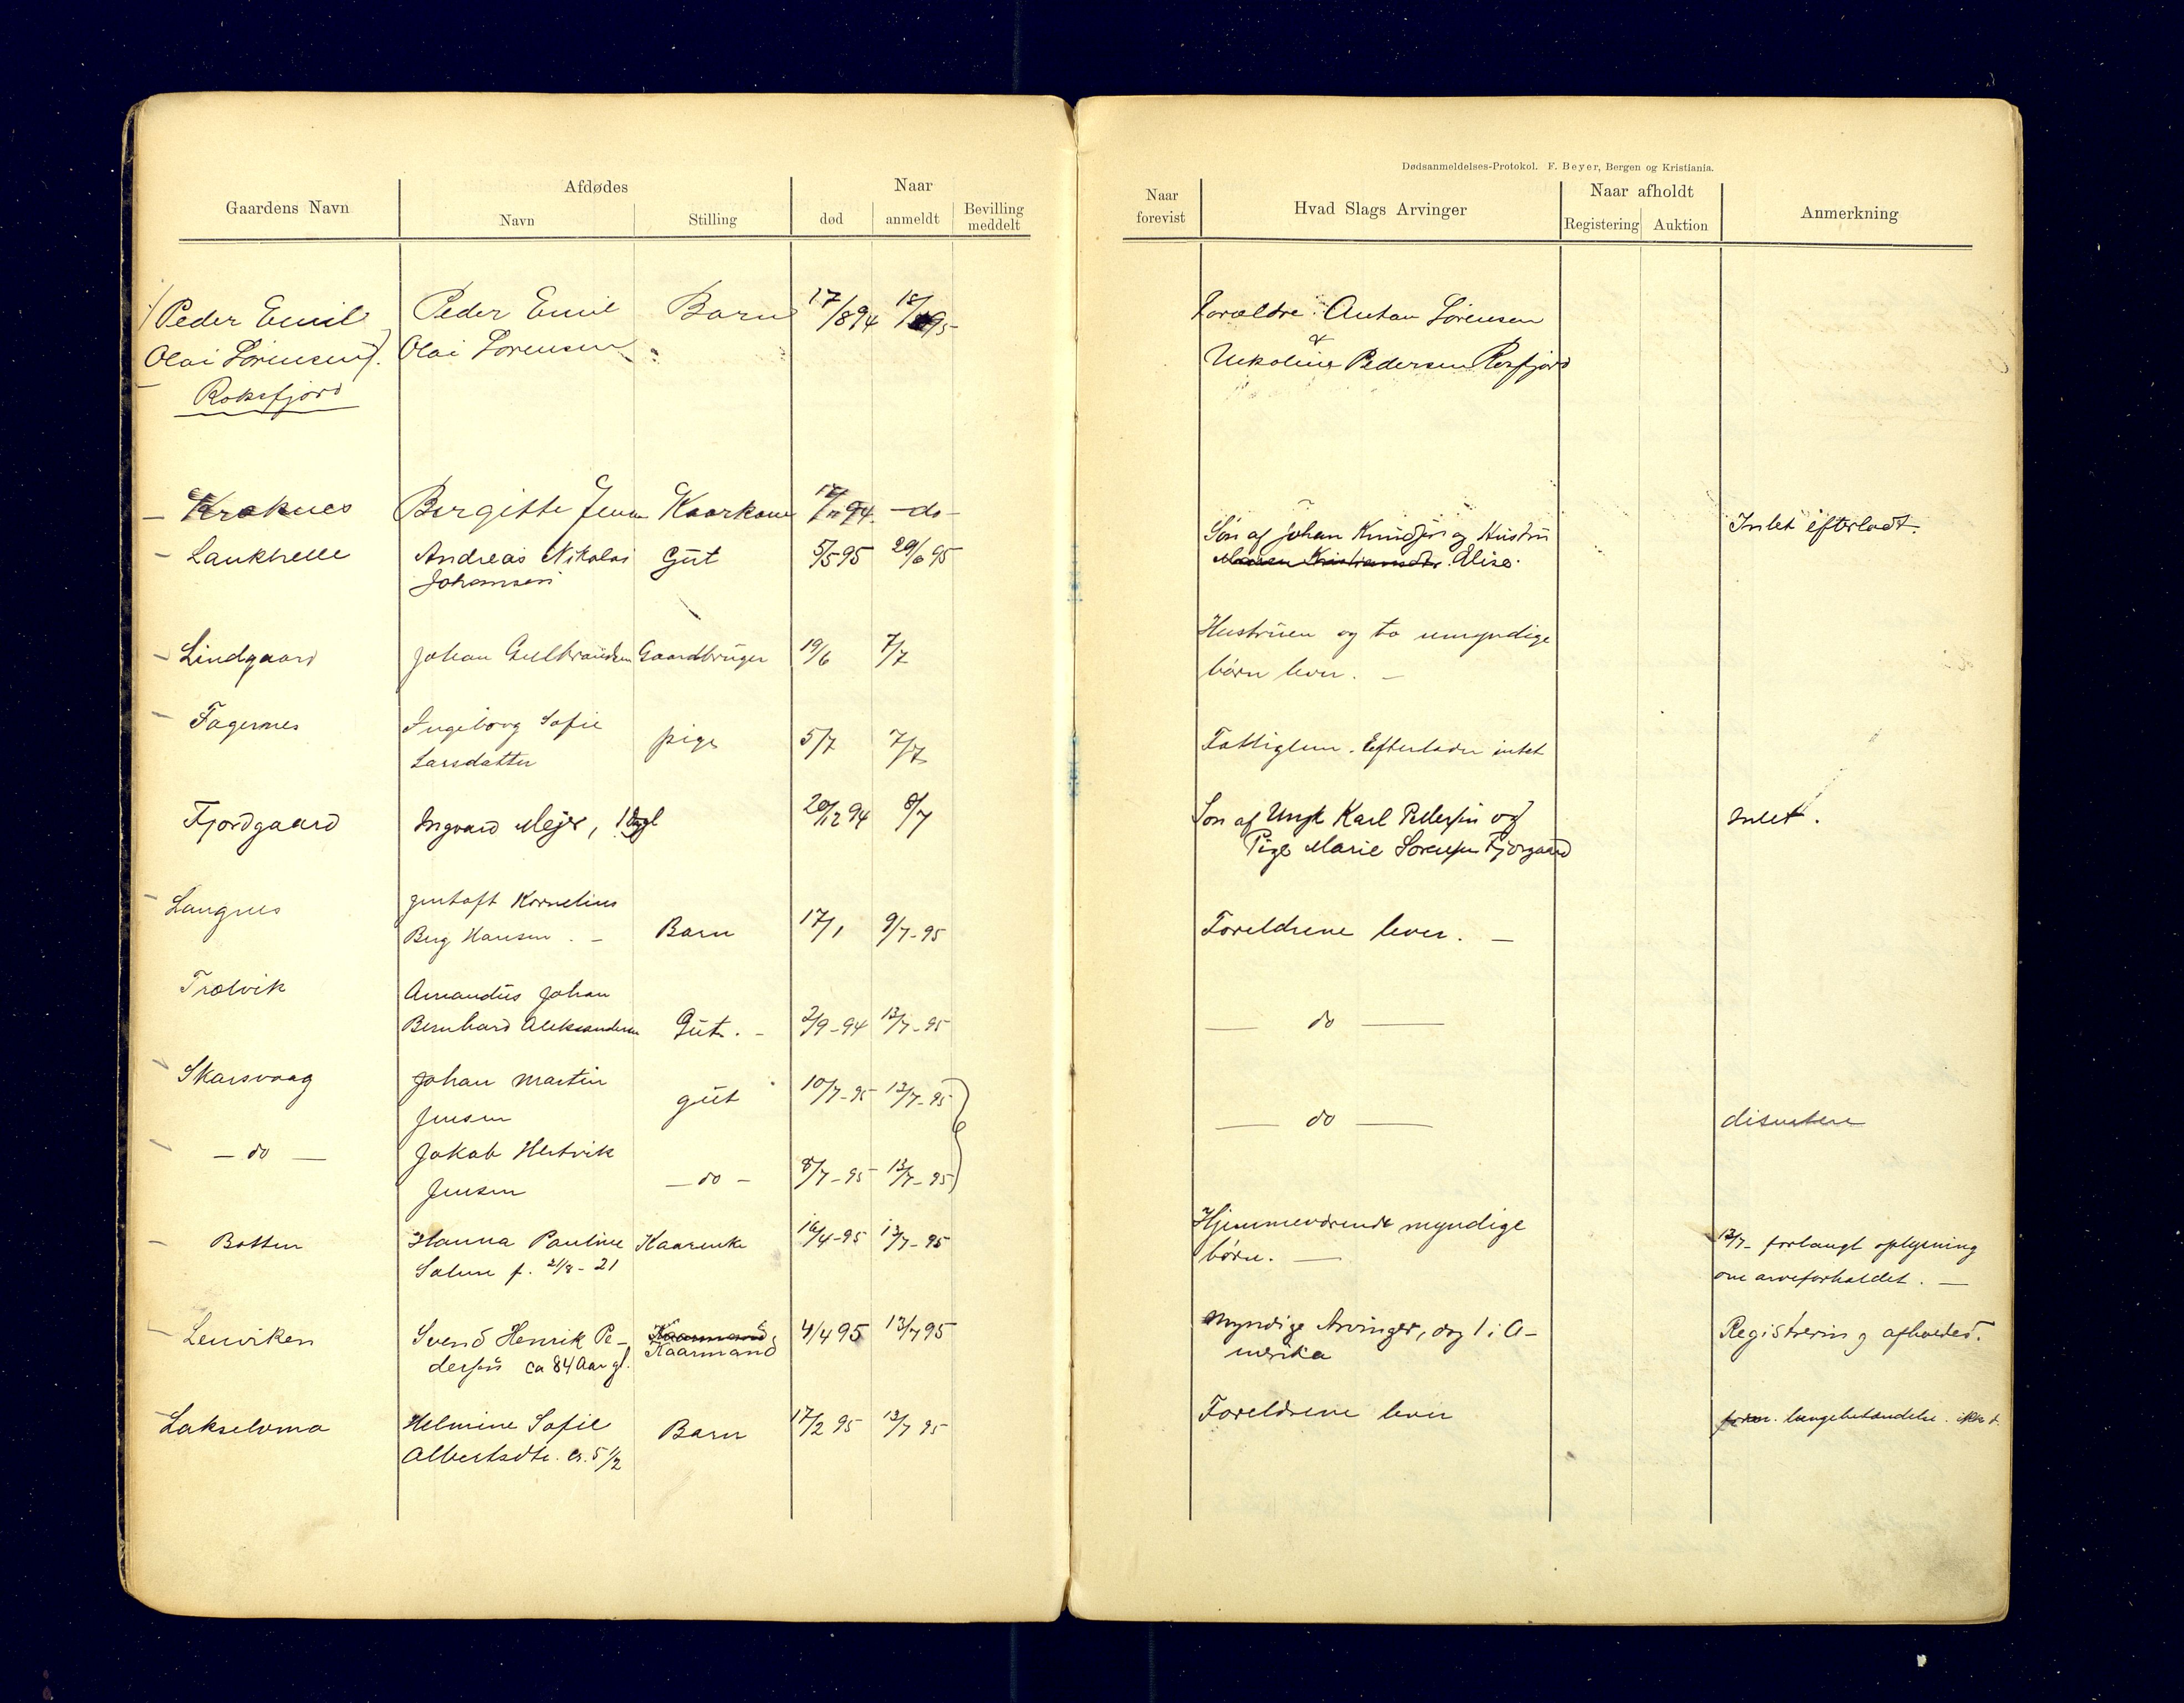 Dødsanmeldelses-Protokol. F. Beyer, Bergen og Kristiania.
Gaardens Navn
Afdødes
Navn
Stilling
Naar
død
anmeldt
Bevilling
meddelt
Naar
forevist
Hvad Slags Arvinger
Naar afholdt
Registering
Auktion
Anmerkning
Peder Emil Peder Emil Barn 17/8 94 Forældre: Anton Sørensen
Olai Sørensen). Olai Sørensen &
Pedersen
Roksfjord
Kraknes Birgitte Kaarkone -do- Intet efterladt.
Laukhelle Andreas Nikolai Gut 5/5 95 29/6 95 Søn af Johan og Hustru
Johansen Elise.
Lindgaard Johan Gulbrandsen Gaardbruger 19/6 7/7 Hustruen og to umyndige
børn lever. -
Fagernes Ingeborg Sofie pige 5/7 7/7 Fattiglem. Efterlader intet
Larsdatter
Fjordgaard Ingvard Mejer, 20/12 94 8/7 Søn af Ungk Karl og Intet.
Pige Marie Fjorgaard
Langnes Kornelius
Berg Hansen. - Barn 17/1 9/7-95 Foreldrene lever. -
Trælvik Amandus Johan
Bernhard Aleksandersen Gut. - 2/9-94 13/7-95 — do —
Skarsvaag Johan Martin gut 10/7-95 13/7-95
Jensen — do —
- do - Jakob Hertvik
Jensen - do - 8/7-95 13/7-95
Botten Hanna Pauline 16/4-95 13/7-95 Hjemmeværende myndige 13/7- forlangt oplysning
f. 21/8-21 børn. — om arveforholdet. -
Lenviken Svend Henrik Pe- Kaarmand 4/4 95 13/7 95 Myndige Arvinger, dog 1 i A- Registrering afholdes.
ca 84 Aar gl. Kaarmand merika
Lakselvmo Helmine Sofie Barn 17/2 95 13/7 95 Foreldrene lever lungebetændelse.
Albertsdtr. 5 1/2